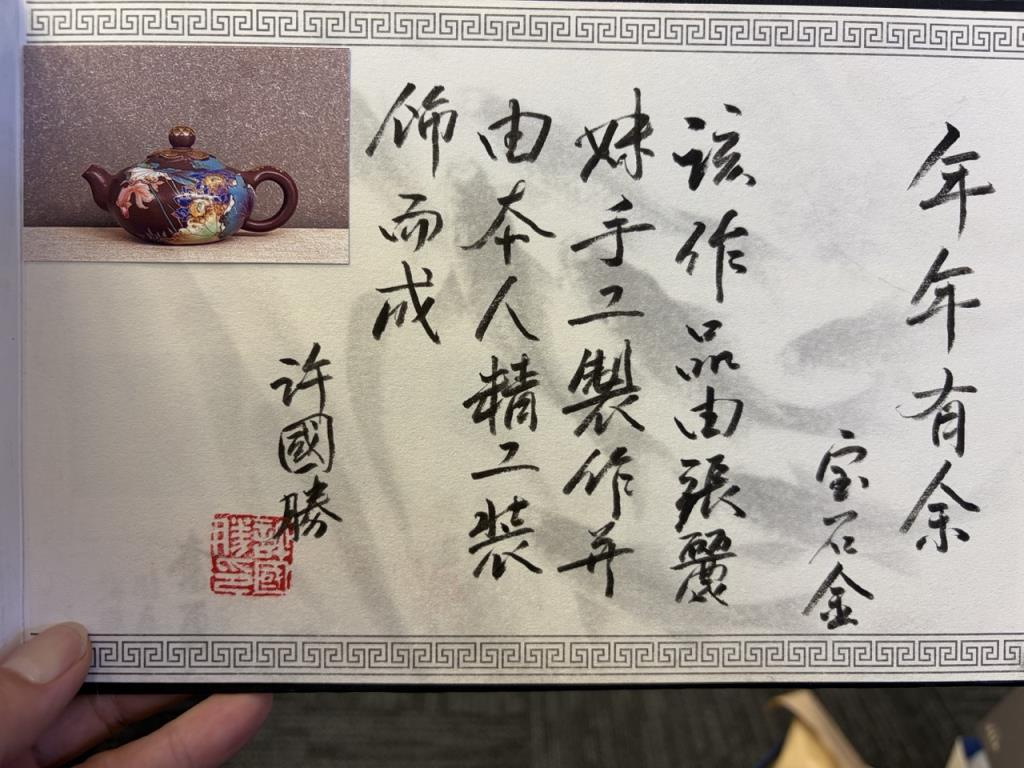 年年有余
宝石金
该作品由張麗
妹手工製作并
由本人精工装
飾而成
许國勝
許國勝印